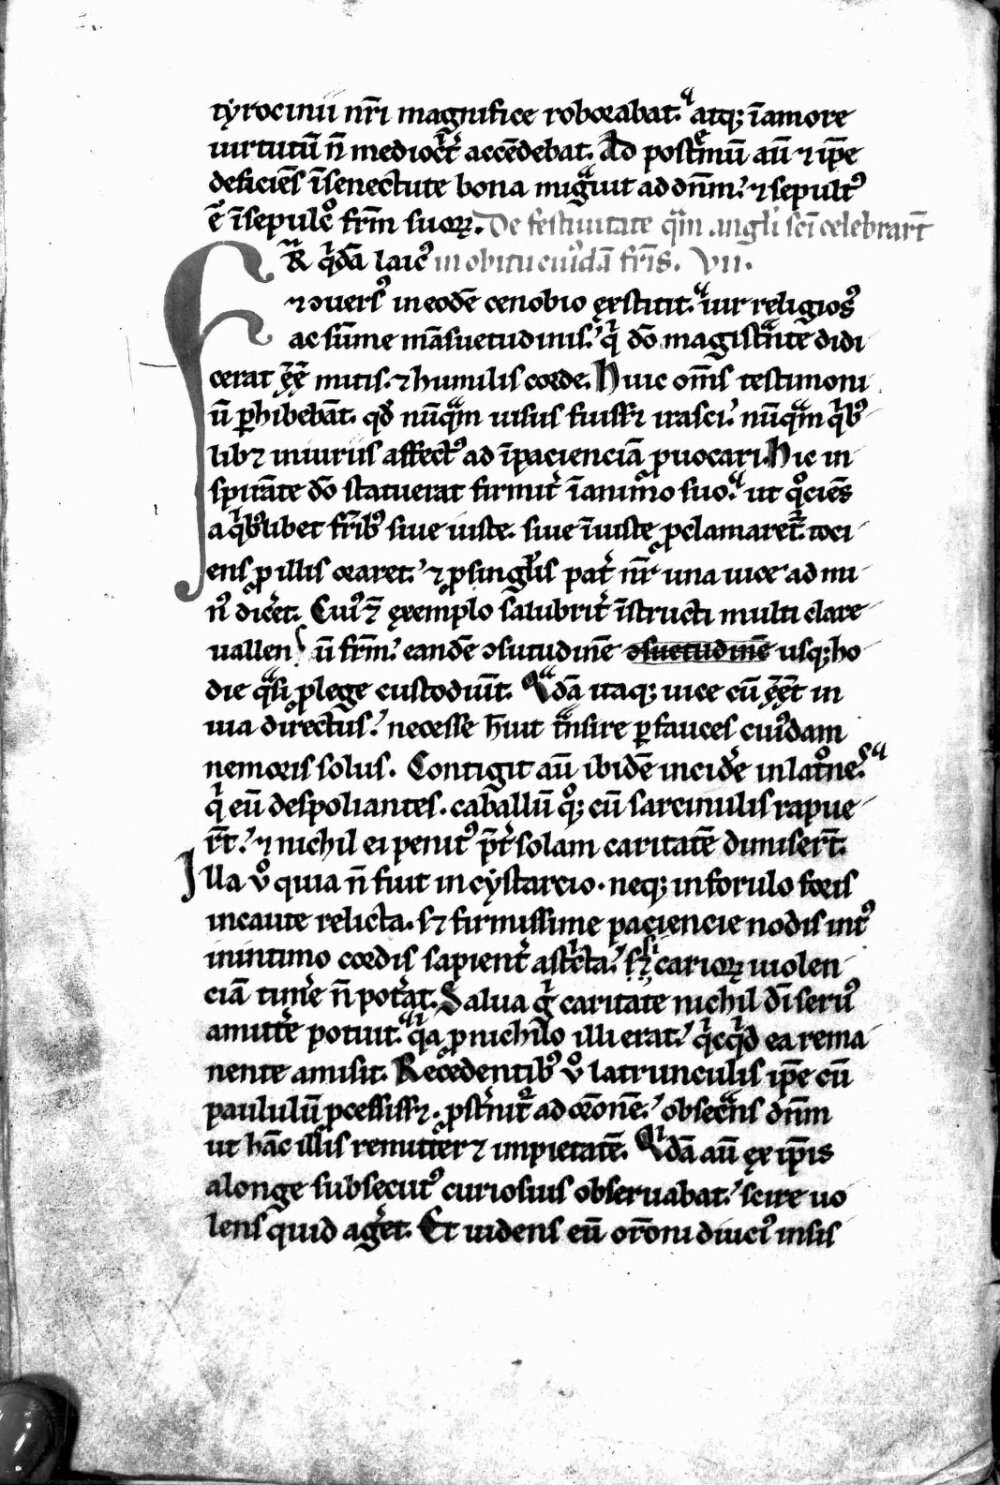 tyrocinii nr̄i magnifice roborabat. atq; ī amore
uirtutū n̄ mediocͥt̄ accēdebat. Ad postͤmū aū ⁊ ip̄e
deficiēs ī senectute bona migᵃuit ad dn̄m. ⁊ sepultꝰ
ē ī sepulcͦ fr̄m suoꝝ. De festiuitate qᵃm angli sc̄i celebrar̄t
Fᵃr̄ qͥdā laicꝰ in obitu cuiꝰdā fr̄is. VII.
⁊ ꝯuersꝰ in eodē cenobio exstitit. uir religiosꝰ
ac sūme māsuetudinis. qͥ dō magistᵃnte didi
cerat eē mitis. ⁊ humilis corde. Huic om̄s testimoni
ū ꝑhibebāt. qd̄ nūqᵃm uisus fuiss⁊ irasci. nūqᵃm qͥbꝰ
lib⁊ iniuriis affectꝰ ad īpacienciā ꝓuocari. Hic in
spirāte dō statuerat firmit̄ ī animo suo. ut qͦciēs
a qͥbꝰlibet fr̄ibꝰ siue iuste. siue īiuste ꝓclamaret᷑. toci
ens ꝓ illis oraret. ⁊ ꝓ singl̄is pat̄ nr̄ una uice ad mi
nꝰ dic̄et. Cuiꝰ ꝫ exemplo salubrit̄ īstructi multi clare
uallensiū fr̄m. eandē ꝯsutudinē ꝯsuetudinē usq; ho
die qᵃsi ꝓ lege custodiūt. Qᵃdā itaq; uice cū eēt in
uia directus. necesse h̄uit tᵃnsire ꝑ fauces cuiꝰdam
nemoris solus. Contigit aū ibidē incid̄e in latͦnes.
qͥ eū despoliantes. caballū qͦ; cū sarcinulis rapue
r̄t. ⁊ nichil ei penitꝰ p̄t̄ solam caritatē dimiser̄t.
Illa uͦ quia n̄ fuit in cystarcio. neq; in forulo foris
incaute relicta. s⁊ firmissime paciencie nodis intꝰ
in intimo cordis sapient̄ astͥcta. sicarioꝝ uiolen
ciā tim̄e n̄ pot̄at. Salua gͥ caritate nichil dī seruꝰ
amitt̄e potuit. qͥa ꝓ nichilo illi erat. qͥcqͥd ea rema
nente amisit. Recedentibꝰ uͦ latrunculis ip̄e cū
paululū ꝓcessiss⁊. ꝓstͣuit᷑ ad orōnē. obsecᵃns dn̄m
ut hāc illis remitter⁊ impietatē. Qͥdā aū ex ip̄is
a longe subsecutꝰ curiosius obseruabat. scire uo
lens quid aḡet. Et uidens eū orōni diuciꝰ insis